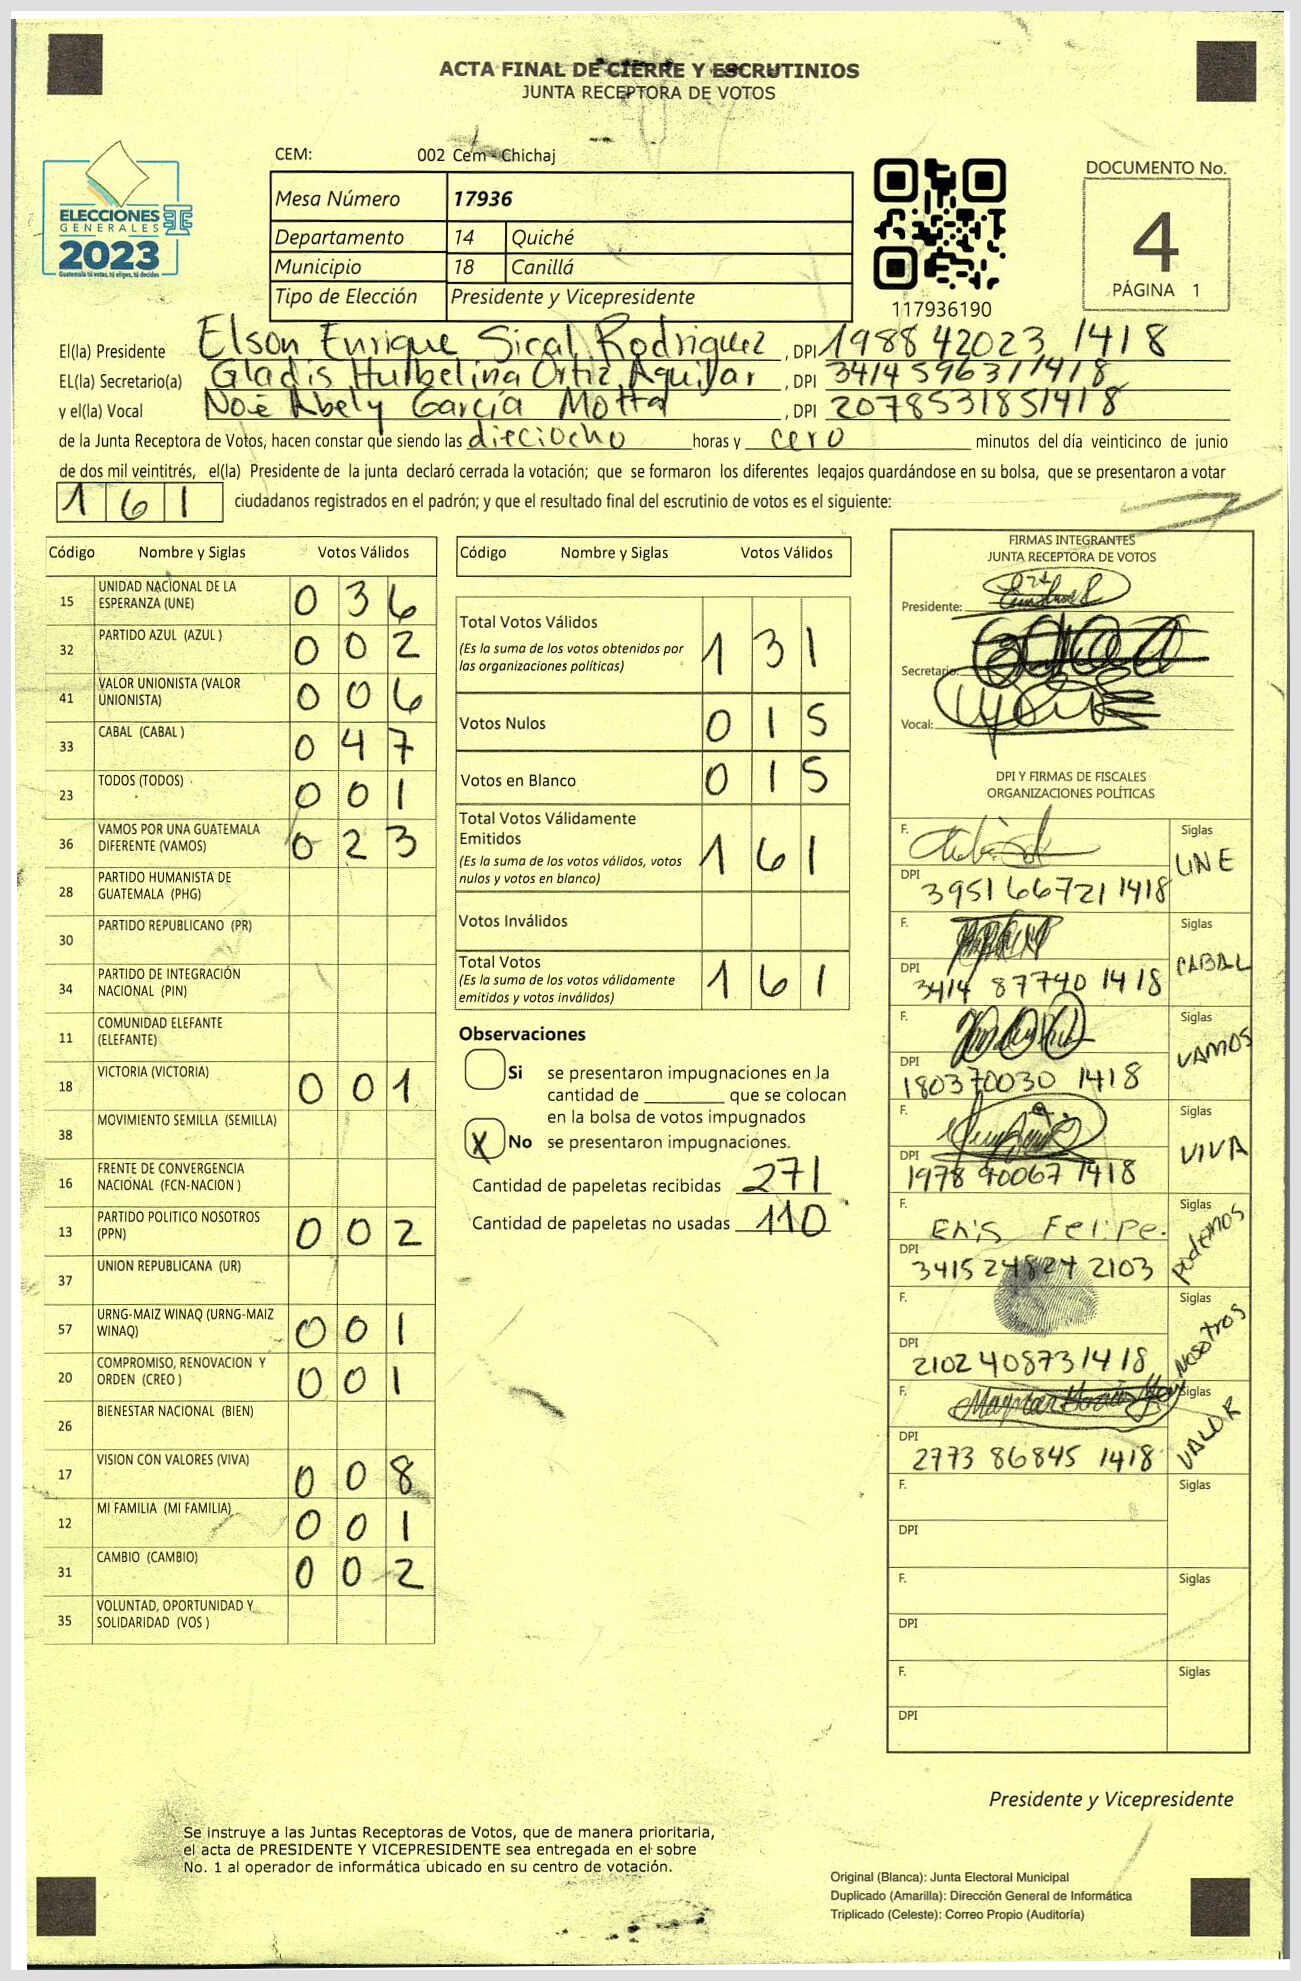 ACTA FINAL DE CIERRE Y ESCRUTINIOS
JUNTA RECEPTORA DE VOTOS
CEM: 002 Cem - Chichaj
ELECCIONES
GENERALES
2023
Guatemala tú votas, tú eliges, tú decides
Mesa Número 17936
Departamento 14 Quiché
Municipio 18 Canillá
Tipo de Elección Presidente y Vicepresidente
117936190
DOCUMENTO No.
4
PÁGINA 1
El(la) Presidente Elson Enrique Sical Rodriguez, DPI 198842023 1418
EL(la) Secretario(a) Gladis Hulbelina Ortiz Aguilar, DPI 3414596311418
y el(la) Vocal Noé Abely García Motta, DPI 2078531851418
de la Junta Receptora de Votos, hacen constar que siendo las dieciocho horas y cero minutos del día veinticinco de junio
de dos mil veintitrés, el(la) Presidente de la junta declaró cerrada la votación; que se formaron los diferentes legajos guardándose en su bolsa, que se presentaron a votar
161 ciudadanos registrados en el padrón; y que el resultado final del escrutinio de votos es el siguiente:
Código Nombre y Siglas Votos Válidos
15 UNIDAD NACIONAL DE LA ESPERANZA (UNE) 036
32 PARTIDO AZUL (AZUL ) 002
41 VALOR UNIONISTA (VALOR UNIONISTA) 006
33 CABAL (CABAL ) 047
23 TODOS (TODOS) 001
36 VAMOS POR UNA GUATEMALA DIFERENTE (VAMOS) 023
28 PARTIDO HUMANISTA DE GUATEMALA (PHG)
30 PARTIDO REPUBLICANO (PR)
34 PARTIDO DE INTEGRACIÓN NACIONAL (PIN)
11 COMUNIDAD ELEFANTE (ELEFANTE)
18 VICTORIA (VICTORIA) 001
38 MOVIMIENTO SEMILLA (SEMILLA)
16 FRENTE DE CONVERGENCIA NACIONAL (FCN-NACION )
13 PARTIDO POLITICO NOSOTROS (PPN) 002
37 UNION REPUBLICANA (UR)
57 URNG-MAIZ WINAQ (URNG-MAIZ WINAQ) 001
20 COMPROMISO, RENOVACION Y ORDEN (CREO ) 001
26 BIENESTAR NACIONAL (BIEN)
17 VISION CON VALORES (VIVA) 008
12 MI FAMILIA (MI FAMILIA) 001
31 CAMBIO (CAMBIO) 002
35 VOLUNTAD, OPORTUNIDAD Y SOLIDARIDAD (VOS )
Código Nombre y Siglas Votos Válidos
Total Votos Válidos 131
(Es la suma de los votos obtenidos por
las organizaciones políticas)
Votos Nulos 015
Votos en Blanco 015
Total Votos Válidamente
Emitidos 161
(Es la suma de los votos válidos, votos
nulos y votos en blanco)
Votos Inválidos
Total Votos 161
(Es la suma de los votos válidamente
emitidos y votos inválidos)
Observaciones
Si se presentaron impugnaciones en la
cantidad de ________ que se colocan
en la bolsa de votos impugnados
X No se presentaron impugnaciones.
Cantidad de papeletas recibidas 271
Cantidad de papeletas no usadas 110
FIRMAS INTEGRANTES
JUNTA RECEPTORA DE VOTOS
Presidente:
Secretario:
Vocal:
DPI Y FIRMAS DE FISCALES
ORGANIZACIONES POLÍTICAS
F. Siglas UNE
DPI 3951667211418
F. Siglas CABAL
DPI 3414 87740 1418
F. Siglas VAMOS
DPI 180370030 1418
F. Siglas VIVA
DPI 1978 90067 1418
F. Enis Felipe. Siglas Podemos
DPI 341524824 2103
F. Siglas Nosotros
DPI 2102408731418
F. Siglas VALOR
DPI 2773 86845 1418
F. Siglas
DPI
F. Siglas
DPI
F. Siglas
DPI
Presidente y Vicepresidente
Se instruye a las Juntas Receptoras de Votos, que de manera prioritaria,
el acta de PRESIDENTE Y VICEPRESIDENTE sea entregada en el sobre
No. 1 al operador de informática ubicado en su centro de votación.
Original (Blanca): Junta Electoral Municipal
Duplicado (Amarilla): Dirección General de Informática
Triplicado (Celeste): Correo Propio (Auditoría)